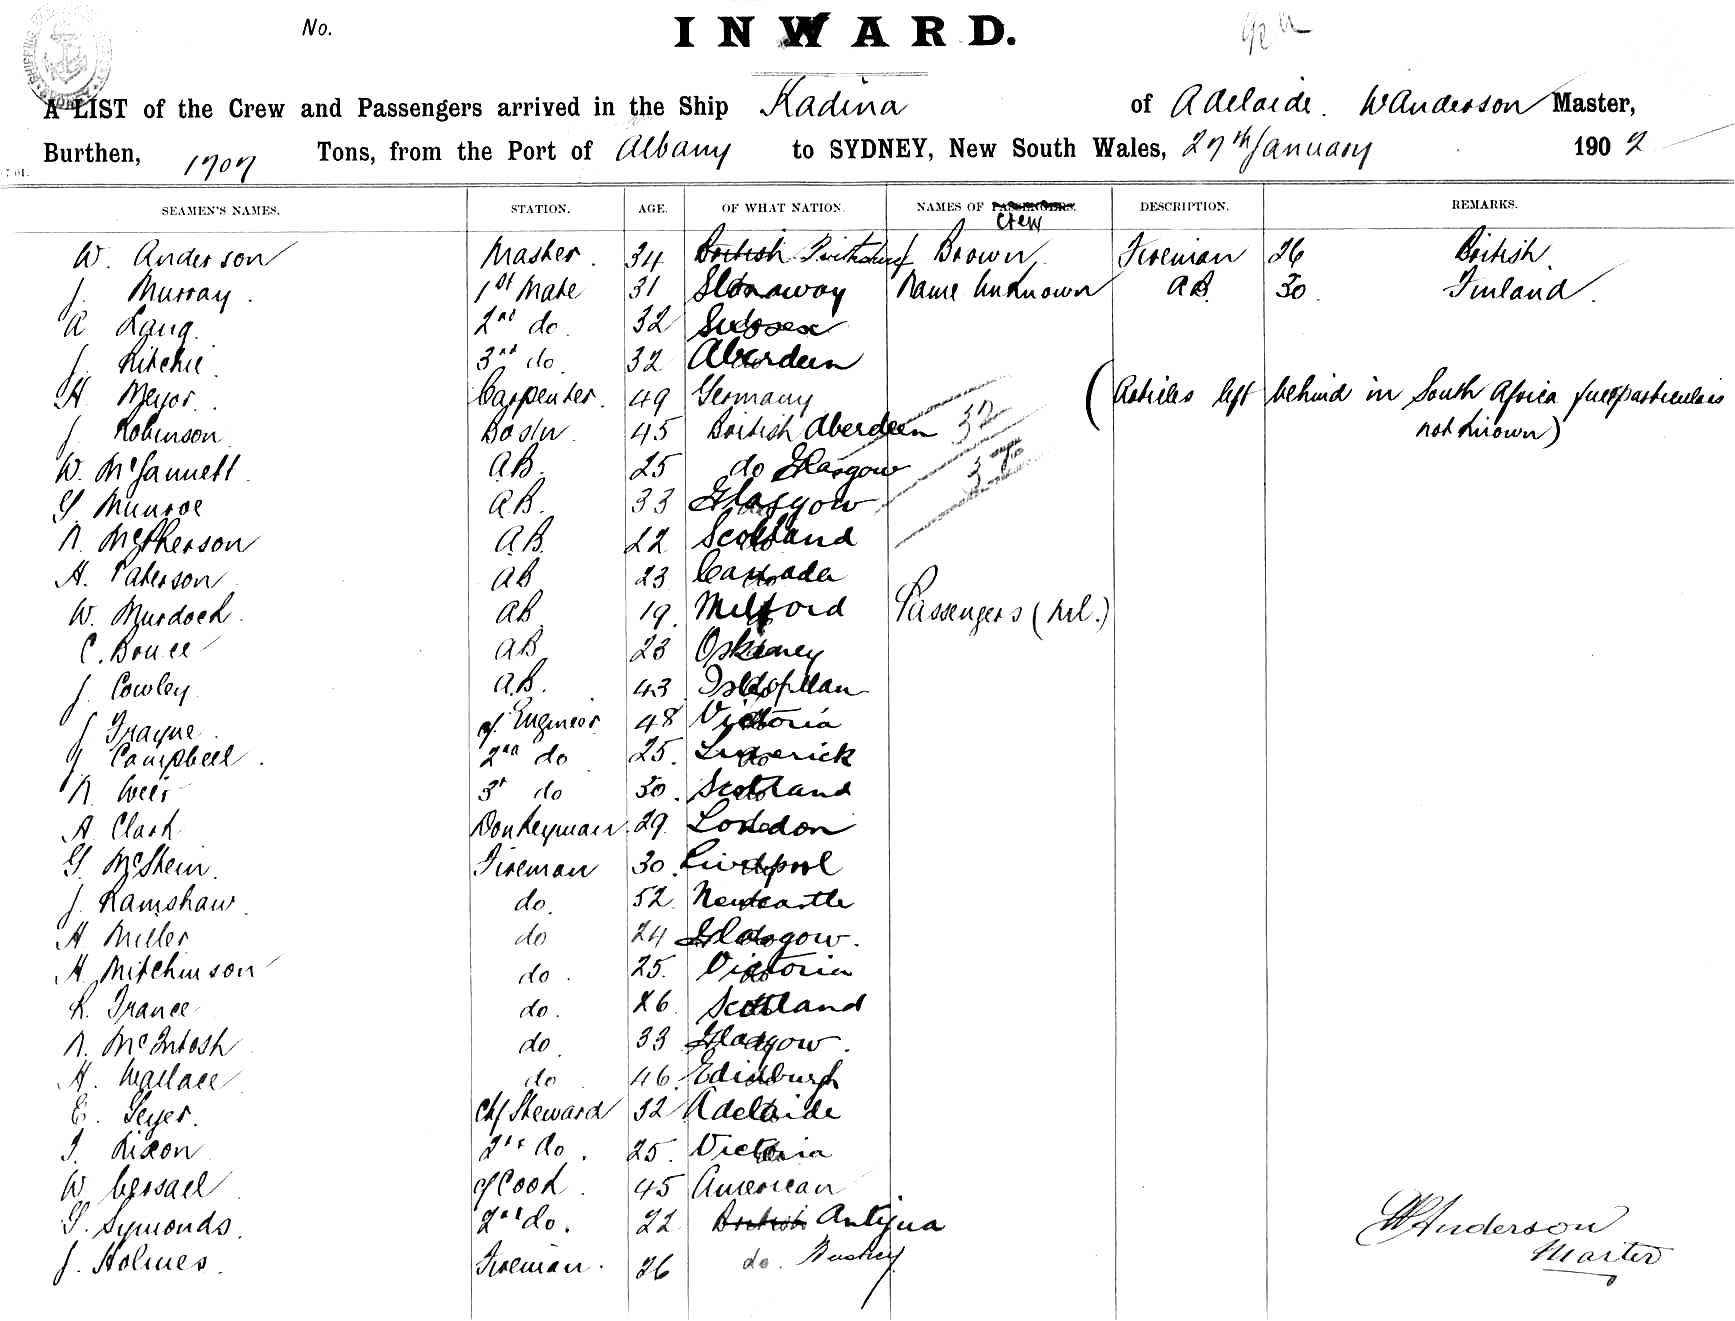 No.
INWARD.
A LIST of the Crew and Passengers arrived in the Ship Kadina of Adelaide. W Anderson Master,
Burthen, 1707 Tons, from the Port of Albany to SYDNEY, New South Wales, 27th January 1902
SEAMEN'S NAMES. STATION. AGE. OF WHAT NATION. NAMES OF PASSENGERS. Crew DESCRIPTION. REMARKS.
W. Anderson Master. 34 British Brown, Fireman 26 British
J. Murray. 1st Mate 31 Stonaway Name Unknown AB. 30. Finland.
A Lang. 2nd do. 32 Sussex
J. Ritchie. 3rd do. 32 Aberdeen
H Meyor. Carpenter. 49 Germany (Articles left behind in South Africa full particulars
J. Robinson Bosun. 45 British Aberdeen 32 not known)
W. McJannett. A.B. 25 do Glasgow 37
G Munroe A.B. 33 Glasgow
N. McPherson A.B. 22 Scotland
H. Paterson AB 23 Canada
W. Murdoch. AB 19. Milford Passengers (nil.)
C. Bruce AB 23 Orkney
J. Cowley. A.B. 43 Isle of Man
J Trayne. cf. Engineer 48 Victoria
G Campbell. 2nd do 25. Limerick
N. Weir 3r do 30. Scotland
A. Clark Donkeyman. 29. London
G. McShein. Fireman 30. Liverpool
J. Ramshaw. do. 52. Newcastle
H Miller do 24 Glasgow.
H Mitchinson do. 25. Victoria
R. France do. 26. Scotland
N. McIntosh do. 33 Glasgow.
H. Wallace do 46. Edinburgh
E. Geyer. Chf Steward 32 Adelaide
T. Rixon 2nd do. 25. Victoria
W. cf Cook. 45 American
G. Symonds. 2nd do. 22 British Antigua W Anderson
J. Holmes. Fireman. 26 do. Master